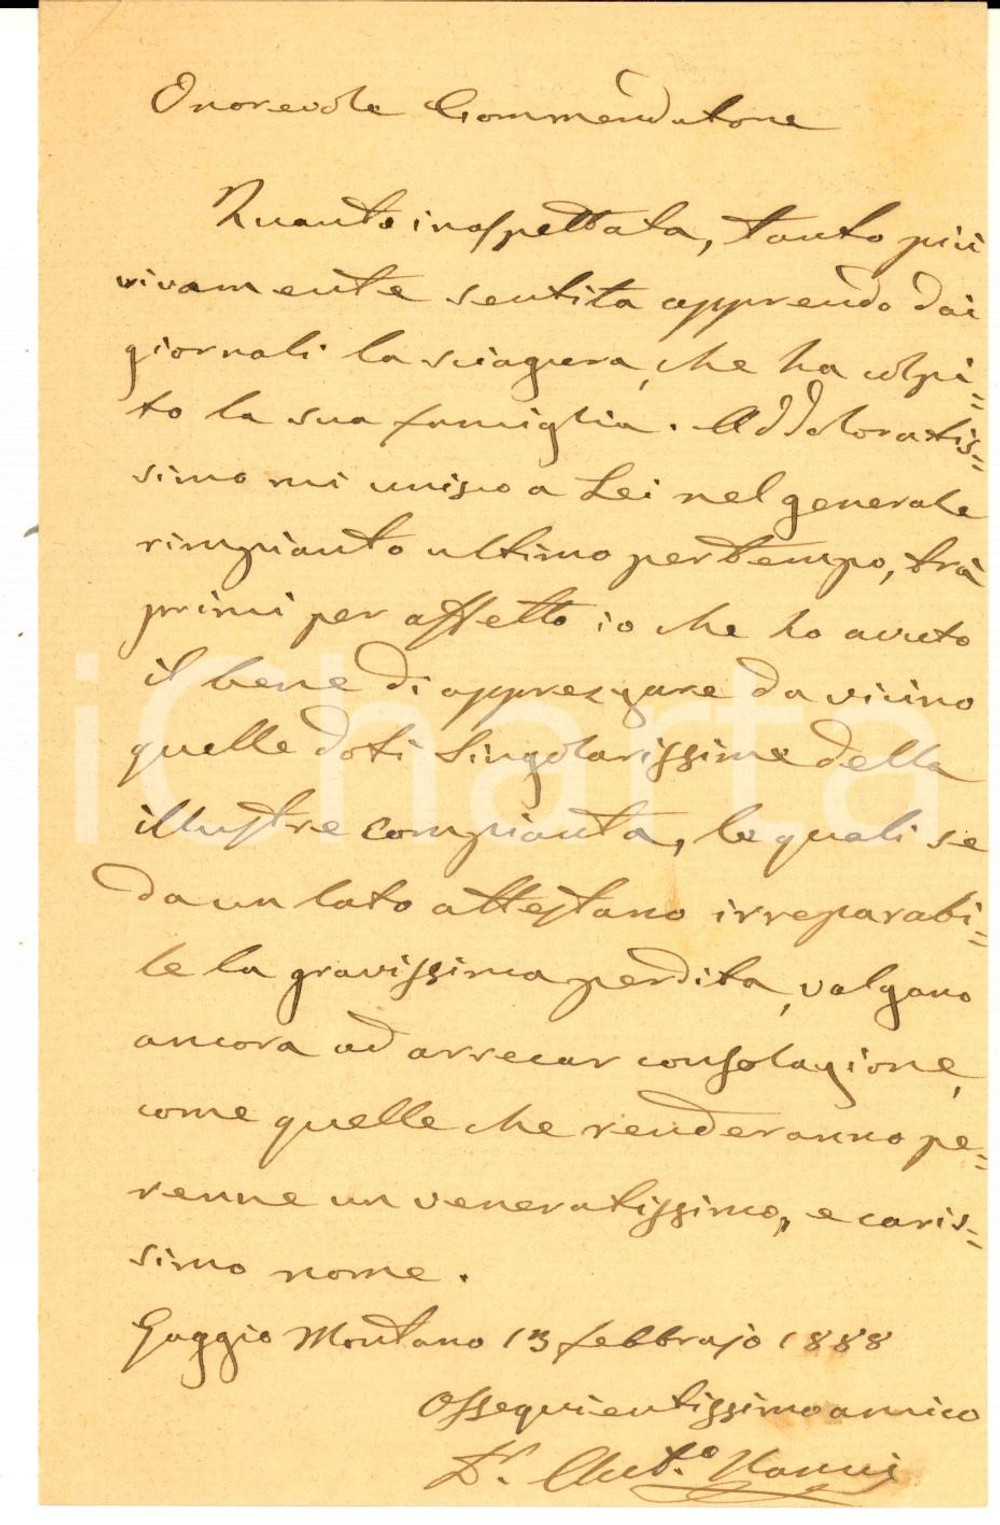 Onorevole Commendatore
Quanto inaspettata, tanto più
vivamente sentita apprendo dai
giornali la sciagura, che ha colpi=
to la sua famiglia. Addoloratis=
simo mi unisco a Lei nel generale
rimpianto ultimo per tempo, tra
primi per affetto io che ho avuto
il bene di apprezzare da vicino
quelle doti singolarissime della
illustre compianta, le quali se
da un lato attestano irreparabi=
le la gravissima perdita, valgano
ancora ad arrecar consolazione,
come quelle che renderanno pe=
renne un veneratissimo, e caris=
simo nome.
Gaggio Montano 13 febbrajo 1888
Ossequientissimo amico
Dr. Ant.o Nanni
iCharta